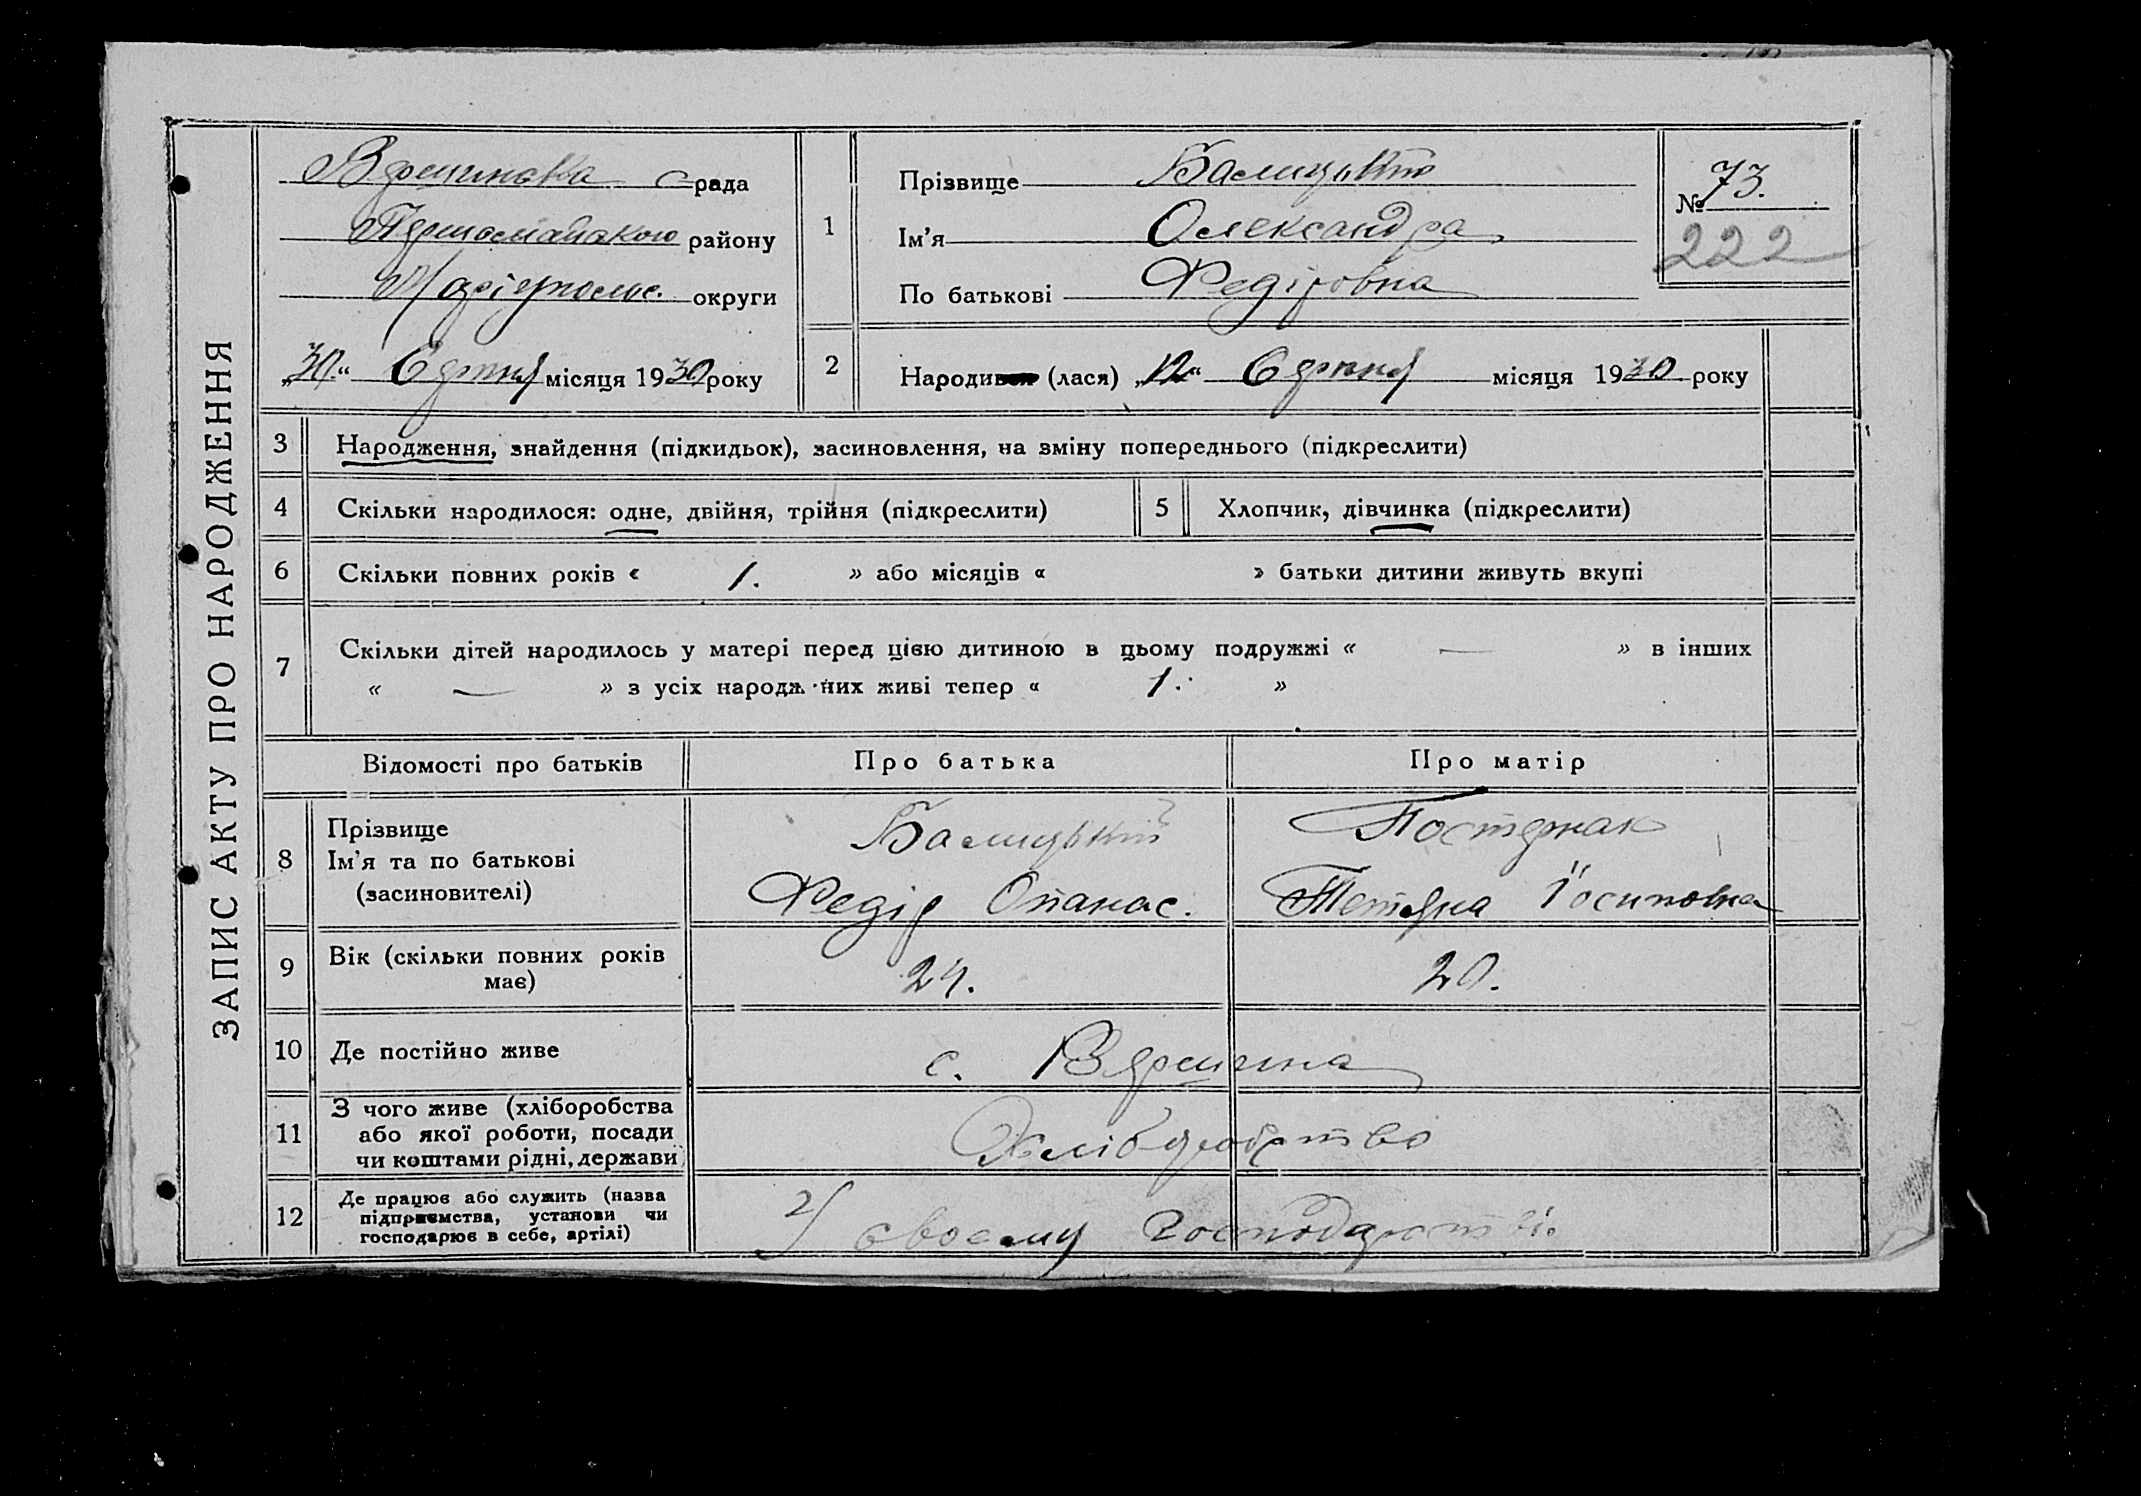 ЗАПИС АКТУ ПРО НАРОДЖЕННЯ
с-рада
Першомайського району
Маріупольс. округи
„30“ Серпня місяця 1930 року
1
Прізвище
Ім’я Олександра
По батькові Федіровна
№ 73.
222
2
Народився (лася) „12“ Серпня місяця 1930 року
3 Народження, знайдення (підкидьок), засиновлення, на зміну попереднього (підкреслити)
4 Скільки народилося: одне, двійня, трійня (підкреслити)
5 Хлопчик, дівчинка (підкреслити)
6 Скільки повних років « 1. » або місяців « » батьки дитини живуть вкупі
7 Скільки дітей народилось у матері перед цією дитиною в цьому подружжі « — » в інших
« — » з усіх народж них живі тепер « 1. »
Відомості про батьків Про батька Про матір
8 Прізвище
Ім’я та по батькові
(засиновителі)
Балицький
Федір Опанас.
Тетяна Йосиповна
9 Вік (скільки повних років
має)
24. 20.
10 Де постійно живе
с.
11 З чого живе (хліборобства
або якої роботи, посади
чи коштами рідні, держави
Хліборобство
12 Де працює або служить (назва
підприємства, установи чи
господарює в себе, артілі)
У своєму господарстві.